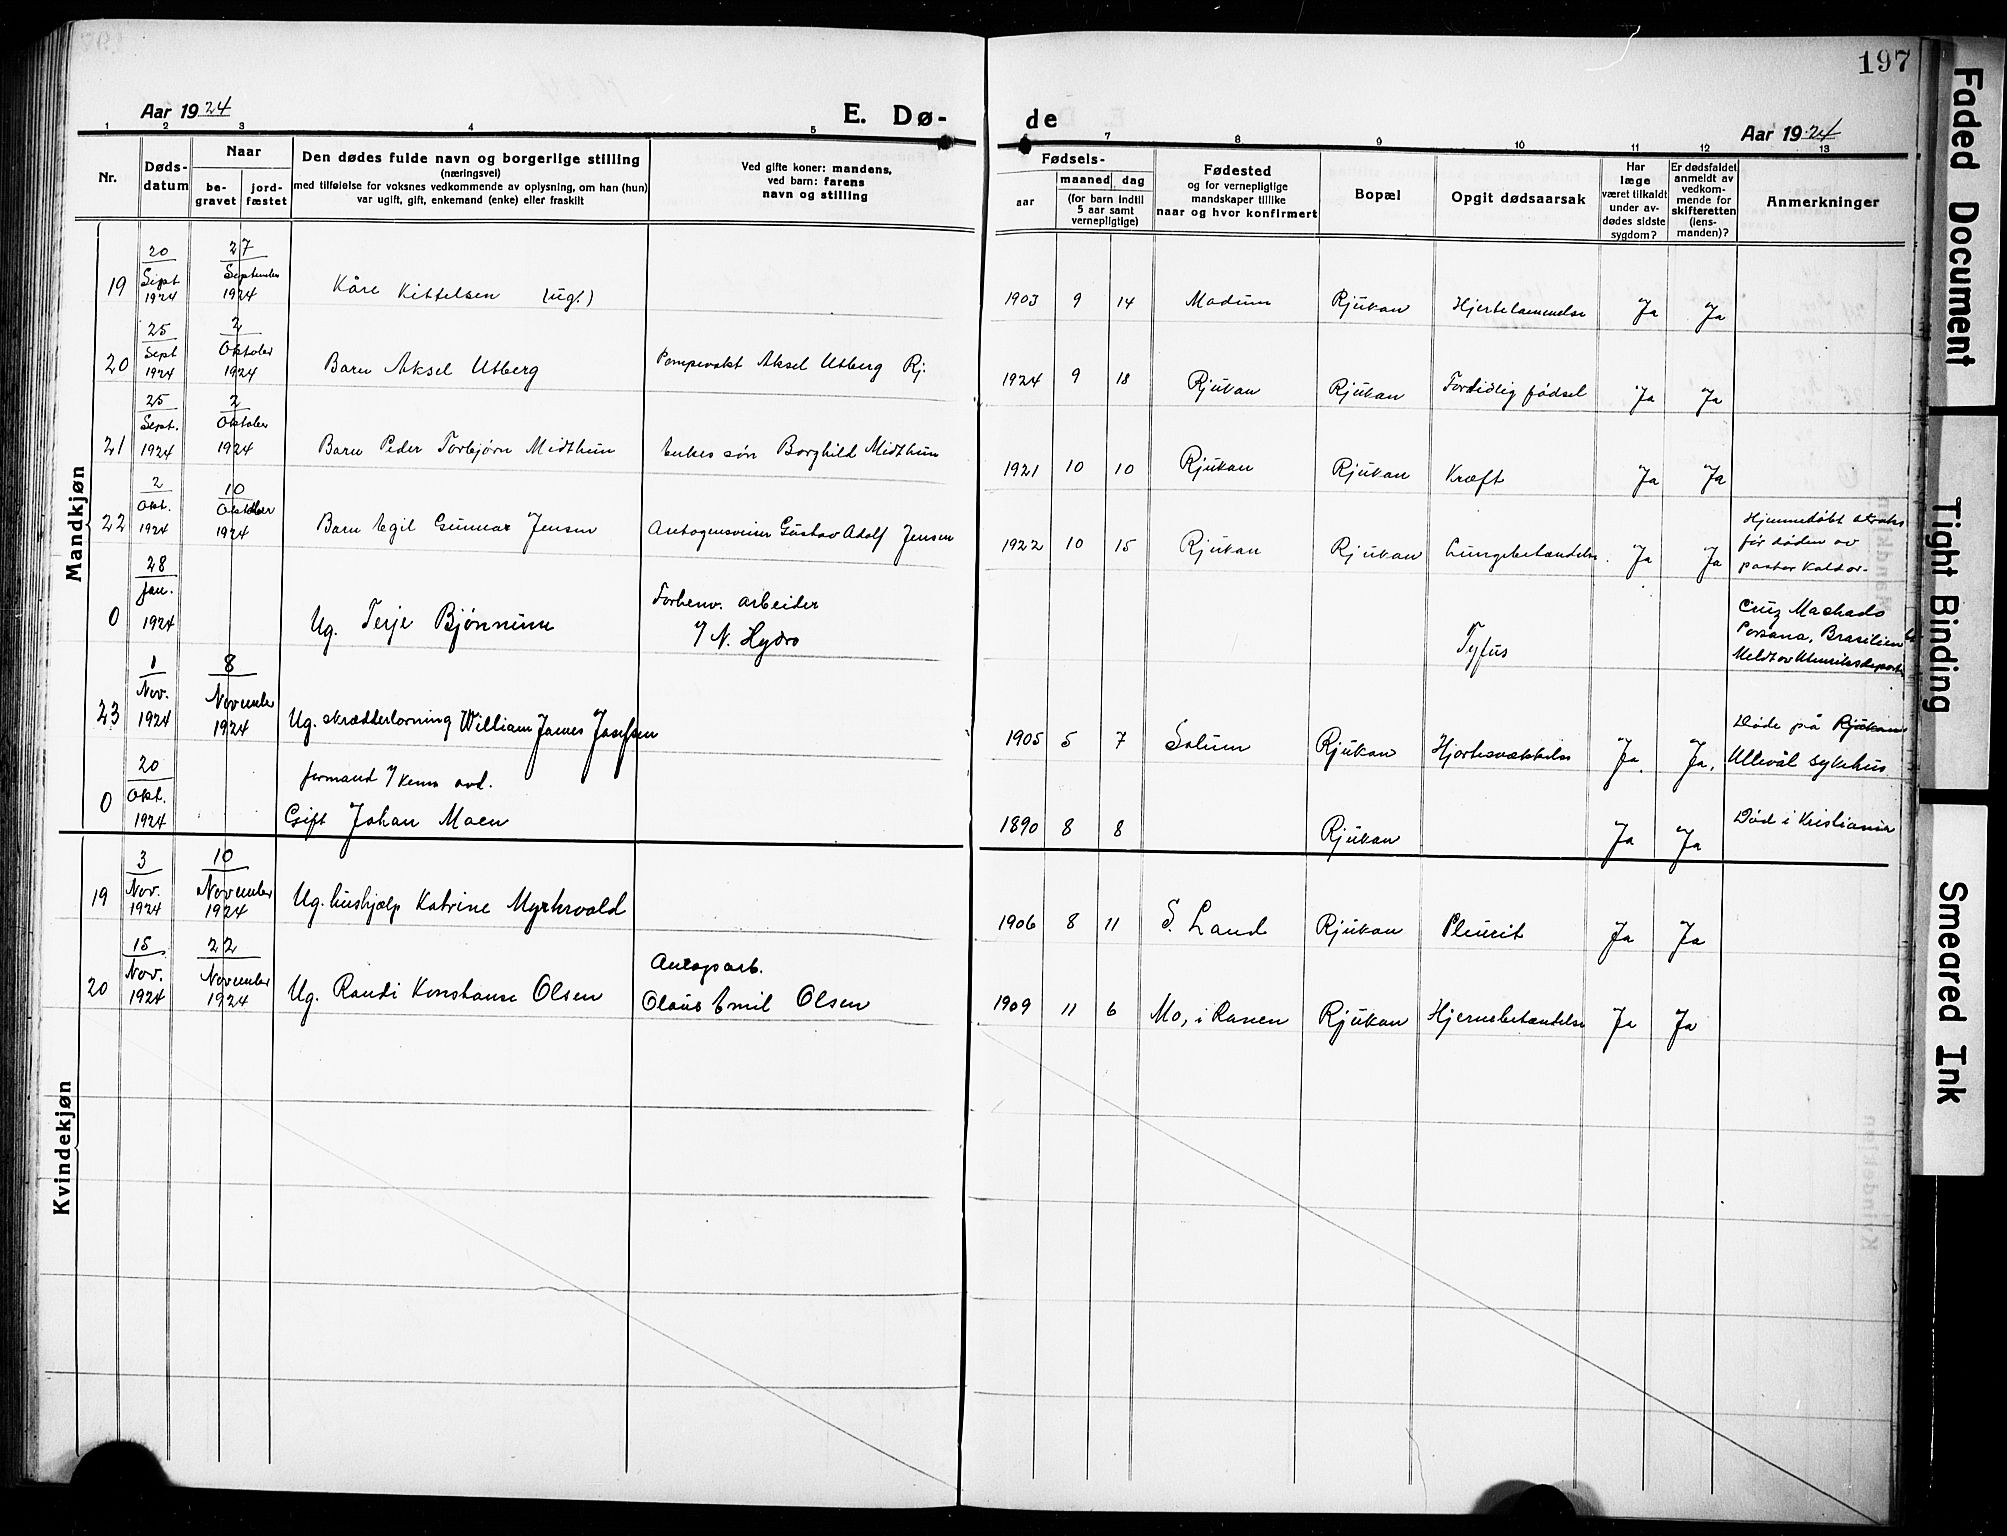 197
Aar 1924
E. Dø-
de
Aar 1924
1 2 3 4 5 6 7 8 9 10 11 12 13
Nr.
Døds-
datum
Naar
be-
gravet
jord-
fæstet
Den dødes fulde navn og borgerlige stilling
(næringsvei)
med tilføielse for voksnes vedkommende av oplysning, om han (hun)
var ugift, gift, enkemand (enke) eller fraskilt
Ved gifte koner: mandens,
ved barn: farens
navn og stilling
Fødsels-
aar
maaned dag
(for barn indtil
5 aar samt
vernepligtige)
Fødested
og for vernepligtige
mandskaper tillike
naar og hvor konfirmert
Bopæl
Opgit dødsaarsak
Har
læge
været tilkaldt
under av-
dødes sidste
sygdom?
Er dødsfaldet
anmeldt av
vedkom-
mende for
skifteretten
(lens-
manden)?
Anmerkninger
Mandkjøn
19 20 Sept 1924 27 September 1924 Kåre Kittelsen (ug.) 1903 9 14 Modum Rjukan Hjertelammelse Ja Ja
20 25 Sept 1924 2 Oktober 1924 Barn Aksel Utberg Pompevakt Aksel Utberg Rj. 1924 9 18 Rjukan Rjukan Fortidlig fødsel Ja Ja
21 25 Sept. 1924 2 Oktober 1924 Barn Peder Torbjørn Midthun Enkes søn Borghild Midthun 1921 10 10 Rjukan Rjukan Kræft Ja Ja
22 2 Okt. 1924 10 Oktober 1924 Barn Egil Gunnar Jensen Autogensveiser Gustav Adolf Jensen 1922 10 15 Rjukan Rjukan Lungebetændelse Ja Ja Hjemmedøbt straks
før døden av
pastor Kaldor-
0 28 Jan. 1924 Ug. Terje Bjønnum Forhenv. arbeider
v/ N. Hydro Tyfus Cruz Machado
Parana, Brasilien
Meldt av Utenriksdepart
23 1 Nov. 1924 8 November 1924 Ug. skrædderlærning William James Josefsen 1905 5 7 Solum Rjukan Hjertesvækkelse Ja Ja. Døde på Rjukan
Ullevål sykehus
0 20 Okt. 1924 formand v/ kem. avd.
Gift Johan Moen 1890 8 8 Rjukan Ja Ja Død i Kristiania
Kvindekjøn
19 3 Nov. 1924 10 November 1924 Ug. hushjælp Katrine Myrhvold 1906 8 11 S. Land Rjukan Pleurit Ja Ja
20 15 Nov. 1924 22 November 1924 Ug. Randi Konstanse Olsen Anlogsarb.
Olaus Emil Olsen 1909 11 6 Mo, i Ranen Rjukan Hjernebetændelse Ja Ja
Faded Document
Tight Binding
Smeared Ink